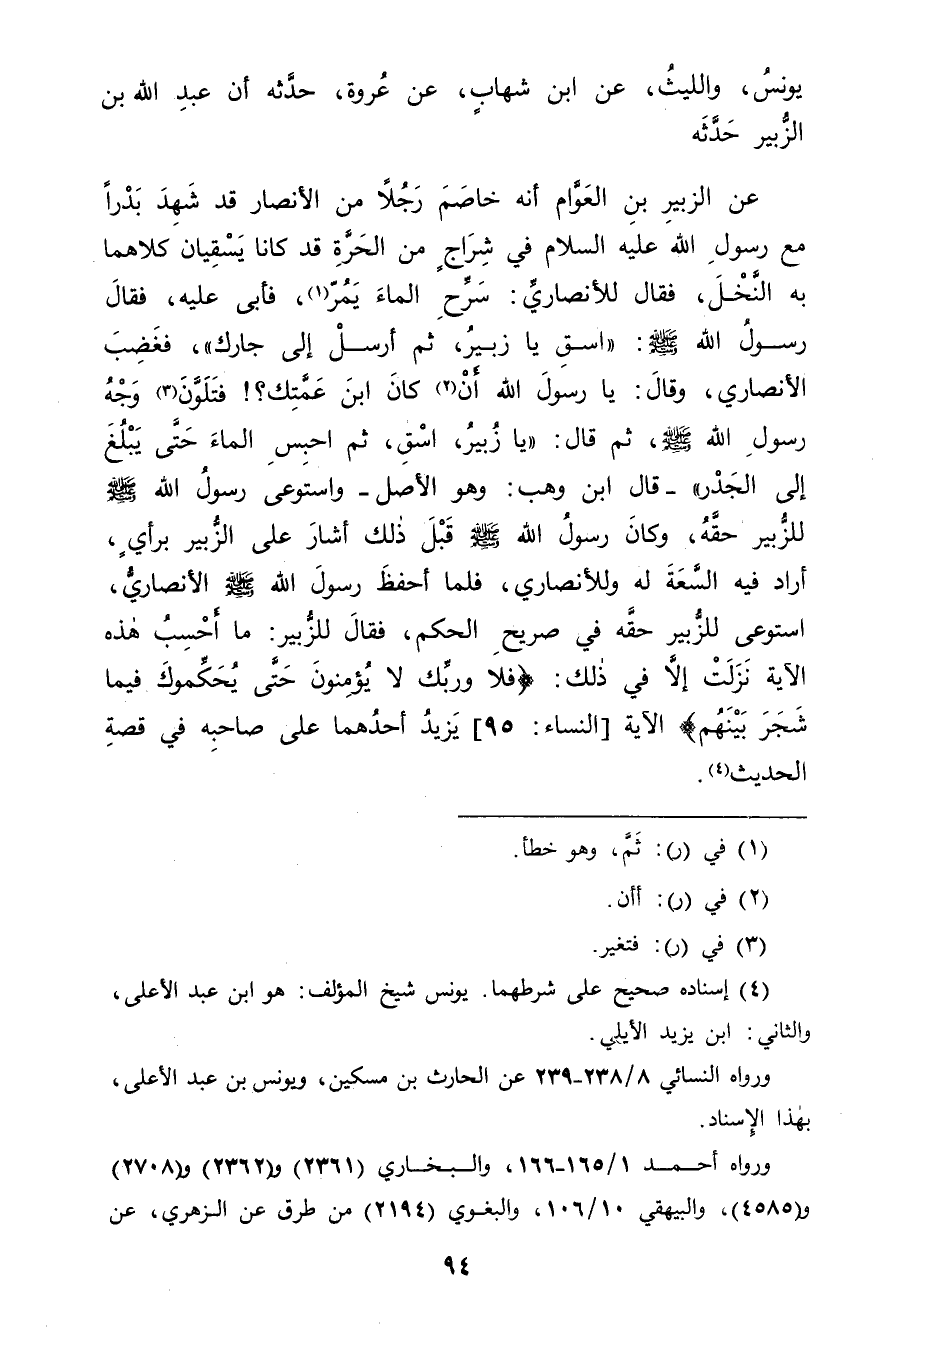 يونسُ، والليثُ، عن ابن شهابٍ، عن عُروة، حدَّثه أن عبدِ الله بن
الزُّبير حَدَّثَه
عن الزبيرِ بنِ العَوَّام أنه خاصَمَ رَجُلًا من الأنصار قد شَهِدَ بَدْراً
مع رسولِ الله عليه السلام في شِرَاجٍ من الحَرَّةِ قد كانا يَسْقِيان كلاهما
به النَّخْلَ، فقال للأنصاريِّ: سَرِّحِ الماءَ يَمُرّ(١)، فأبى عليه، فقالَ
رسولُ الله ﷺ: «اسقِ يا زبيرُ، ثم أرسلْ إلى جارك»، فغَضِبَ
الأنصاري، وقالَ: يا رسولَ الله أَنْ(٢) كانَ ابنَ عَمَّتِك؟! فتَلَوَّنَ(٣) وَجْهُ
رسولِ الله ﷺ، ثم قال: «يا زُبيرُ، اسْقِ، ثم احبِسِ الماءَ حَتَّى يَبْلُغَ
إلى الجَدْرِ» ـ قال ابن وهب: وهو الأصل ـ واستوعى رسولُ الله ﷺ
للزُّبير حقَّهُ، وكانَ رسولُ الله ﷺ قَبْلَ ذٰلك أشارَ على الزُّبير برأيٍ،
أراد فيه السَّعَةَ له وللأنصاري، فلما أحفظَ رسولَ الله ﷺ الأنصاريُّ،
استوعى للزُّبير حقَّه في صريحِ الحكم، فقالَ للزُّبير: ما أَحْسِبُ هٰذه
الآية نَزَلَتْ إلَّا في ذٰلك: ﴿فلا وربِّك لا يُؤمِنونَ حَتَّى يُحَكِّموكَ فيما
شَجَرَ بَيْنَهُم﴾ الآية [النساء: ٩٥] يَزيدُ أحدُهما على صاحبِه في قصةِ
الحديث(٤).
(١) في (ر): ثَمَّ، وهو خطأ.
(٢) في (ر): أأن.
(٣) في (ر): فتغير.
(٤) إسناده صحيح على شرطهما. يونس شيخ المؤلف: هو ابن عبد الأعلى،
والثاني: ابن يزيد الأيلي.
ورواه النسائي ٨/٢٣٨-٢٣٩ عن الحارث بن مسكين، ويونس بن عبد الأعلى،
بهٰذا الإِسناد.
ورواه أحمد ١/١٦٥-١٦٦، والبخاري (٢٣٦١) و(٢٣٦٢) و(٢٧٠٨)
و(٤٥٨٥)، والبيهقي ١٠/١٠٦، والبغوي (٢١٩٤) من طرق عن الزهري، عن
٩٤